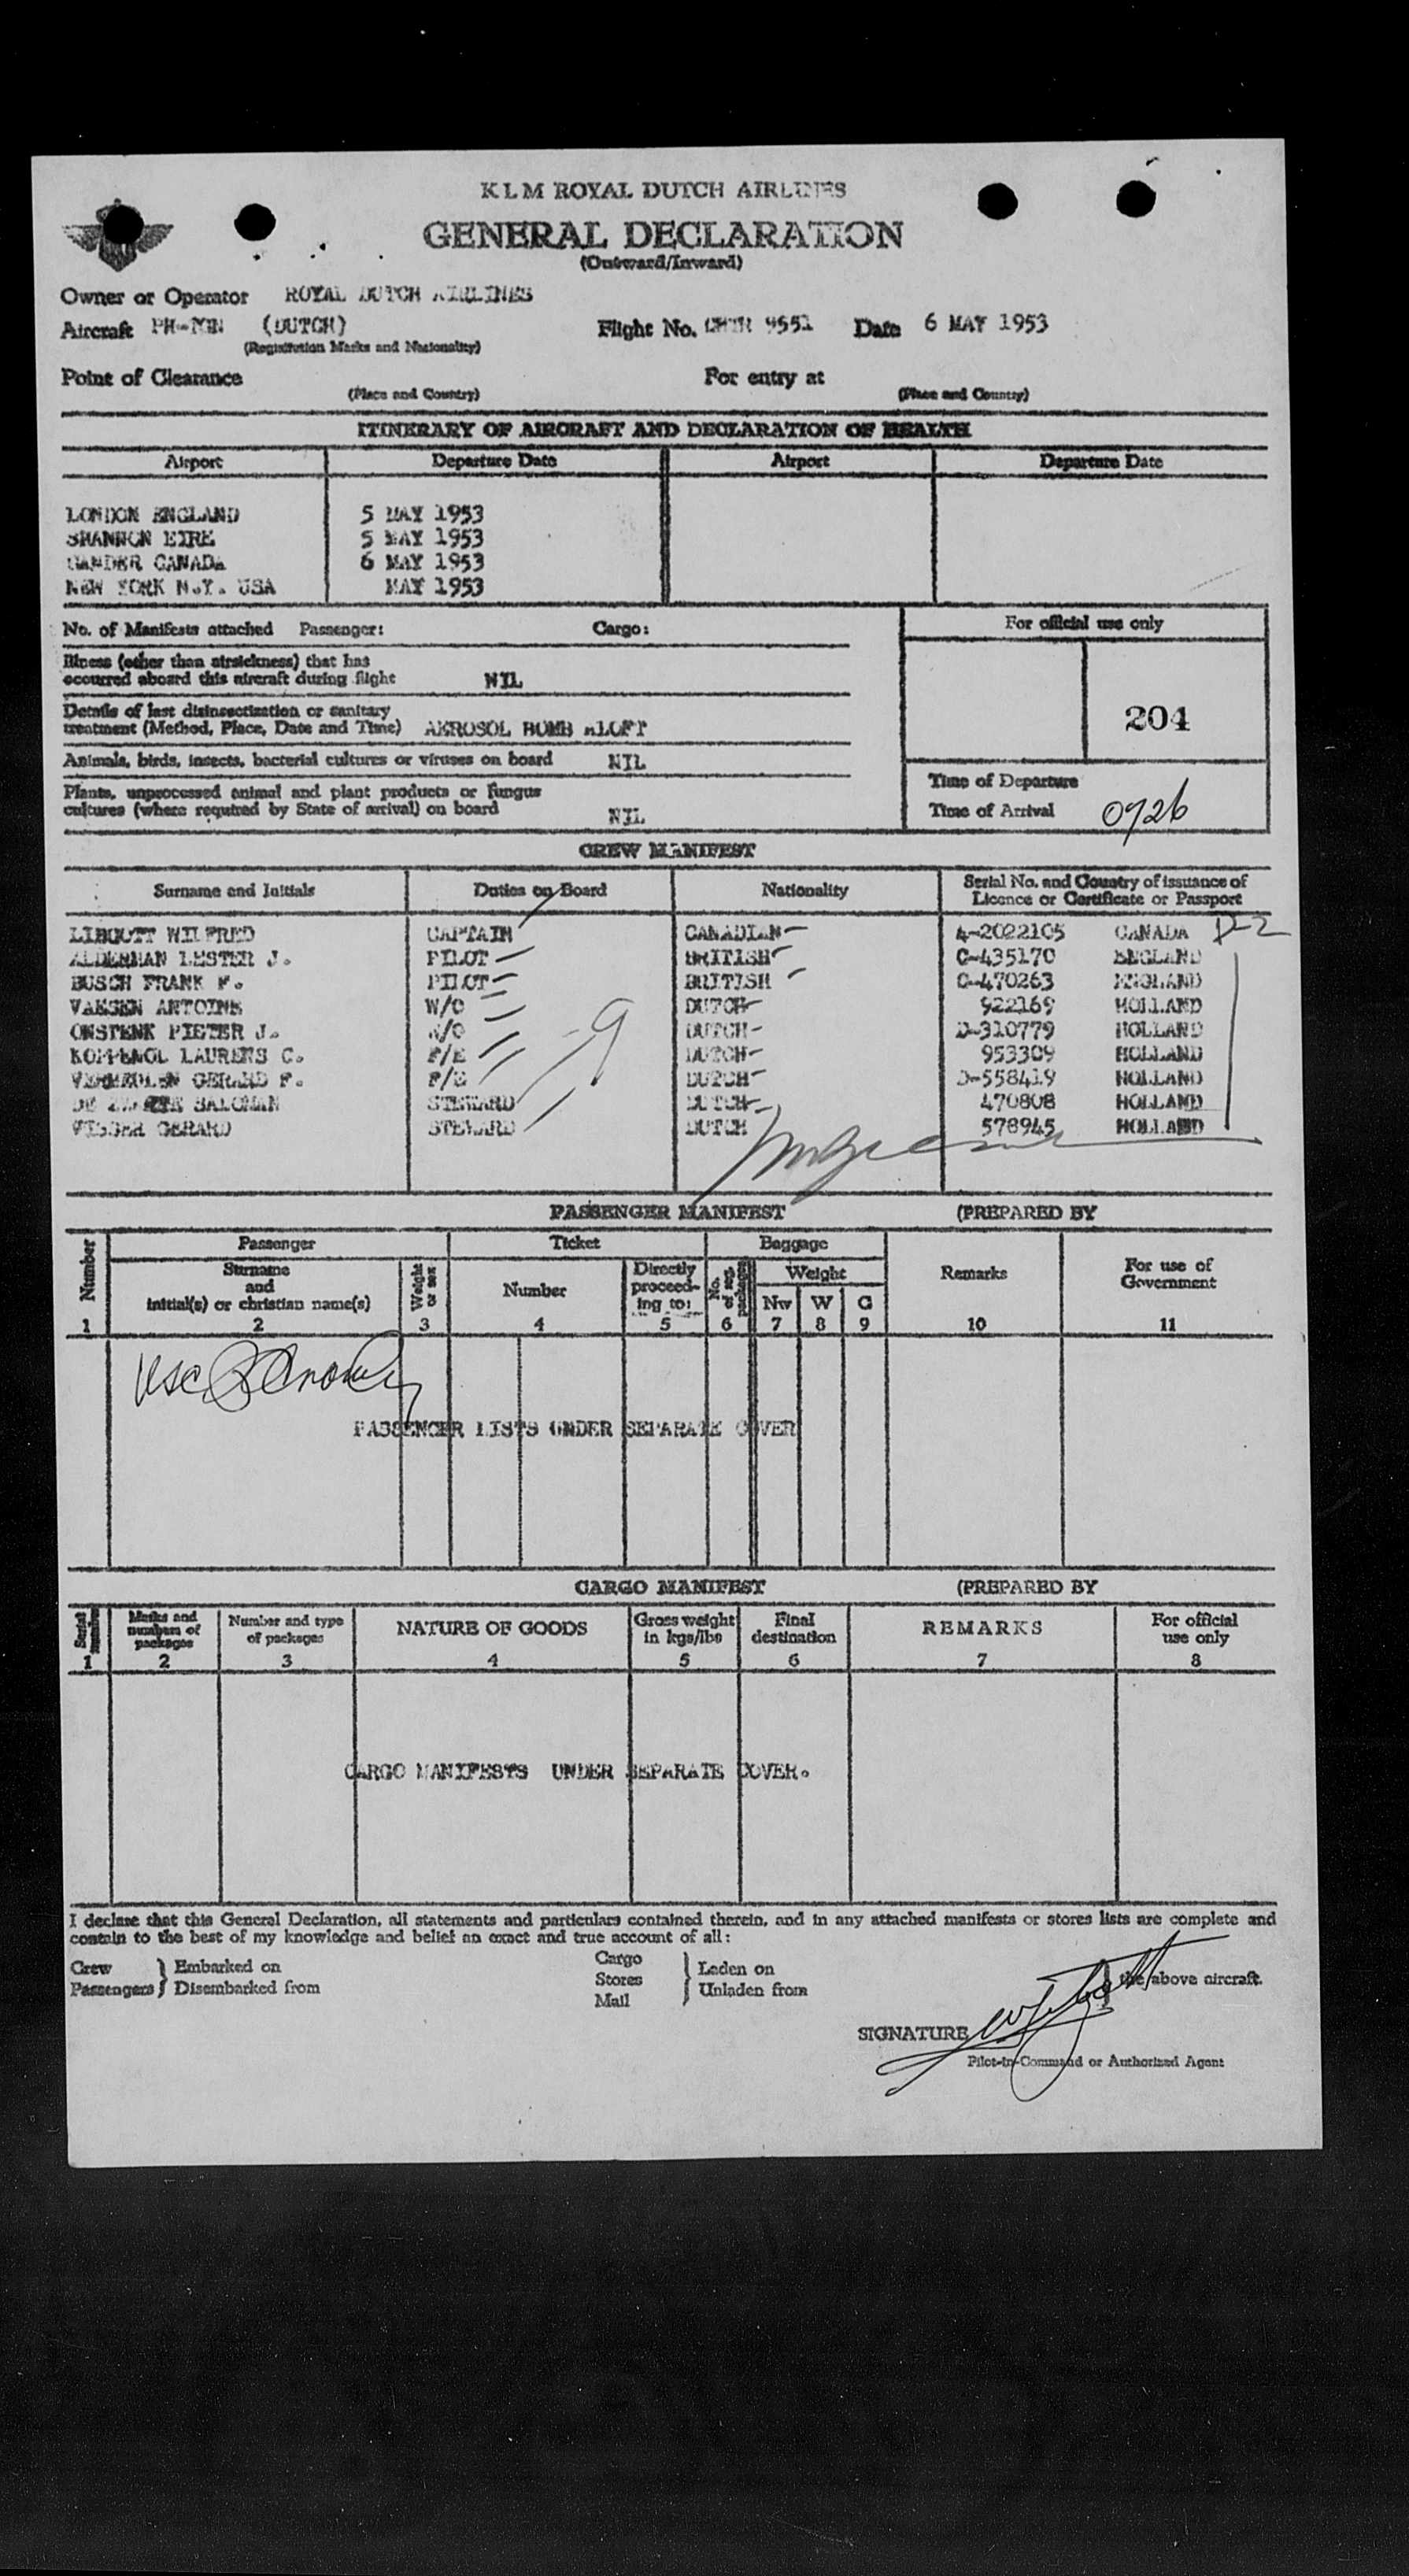 KLM ROYAL DUTCH AIRLINES
GENERAL DECLARATION
(Outward/Inward)
Owner or Operator ROYAL DUTCH AIRLINES
Aircraft (DUTCH) Flight No. 9551 Date 6 MAY 1953
(Registration Marks and Nationality)
Point of Clearance For entry at
(Place and Country) (Place and Country)
ITINERARY OF AIRCRAFT AND DECLARATION OF HEALTH
Airport Departure Date Airport Departure Date
LONDON ENGLAND 5 MAY 1953
SHANNON EIRE 5 MAY 1953
GANDER CANADA 6 MAY 1953
NEW YORK N.Y. USA MAY 1953
No. of Manifests attached Passenger: Cargo: For official use only
Illness (other than airsickness) that has
occurred aboard this aircraft during flight NIL
Details of last disinsectization or sanitary
treatment (Method, Place, Date and Time) AEROSOL BOMB ALOFT
204
Animals, birds, insects, bacterial cultures or viruses on board NIL
Plants, unprocessed animal and plant products or fungus
cultures (where required by State of arrival) on board NIL
Time of Departure
Time of Arrival 0926
CREW MANIFEST
Surname and Initials Duties on Board Nationality Serial No. and Country of issuance of
Licence or Certificate or Passport
WILFRED CAPTAIN CANADIAN 4-2022105 CANADA D-2
ALDERMAN LESTER J. PILOT BRITISH C-435170 ENGLAND
BUSCH FRANK F. PILOT BRITISH C-470263 ENGLAND
VAESEN ANTOINE W/O DUTCH 922169 HOLLAND
ONSTENK PIETER J. W/O DUTCH D-310779 HOLLAND
KOPPENOL LAURENS C. F/E DUTCH 953309 HOLLAND
VERMEULEN GERARD F. F/E DUTCH D-558419 HOLLAND
DE SALOMAN STEWARD DUTCH 470808 HOLLAND
VISSER GERARD STEWARD DUTCH 578945 HOLLAND
9
PASSENGER MANIFEST (PREPARED BY
Number Passenger Ticket Baggage Remarks For use of
Government
Surname
and
initial(s) or christian name(s) Weight or sex Number Directly
proceed-
ing to: No. of reg. packages Weight
Nw W G
1 2 3 4 5 6 7 8 9 10 11
PASSENGER LISTS UNDER SEPARATE COVER
CARGO MANIFEST (PREPARED BY
Serial number Marks and
numbers of
packages Number and type
of packages NATURE OF GOODS Gross weight
in kgs/lbs Final
destination REMARKS For official
use only
1 2 3 4 5 6 7 8
CARGO MANIFESTS UNDER SEPARATE COVER.
I declare that this General Declaration, all statements and particulars contained therein, and in any attached manifests or stores lists are complete and
contain to the best of my knowledge and belief an exact and true account of all:
Crew } Embarked on Cargo } Laden on
Passengers } Disembarked from Stores } Unladen from } the above aircraft.
Mail
SIGNATURE
Pilot-in-Command or Authorized Agent